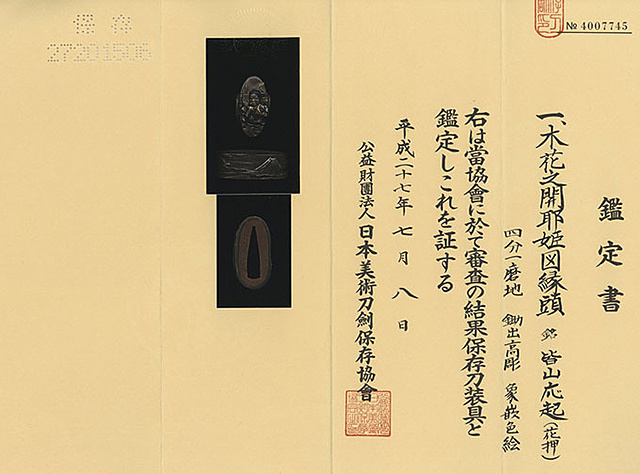 № 4007745
鑑定書
一、木花之開耶姫図縁頭 銘 皆山応起(花押)
四分一磨地 鋤出高彫 象嵌色絵
右は當協會に於て審査の結果保存刀装具と
鑑定しこれを証する
平成二十七年七月八日
公益財團法人 日本美術刀劍保存協會